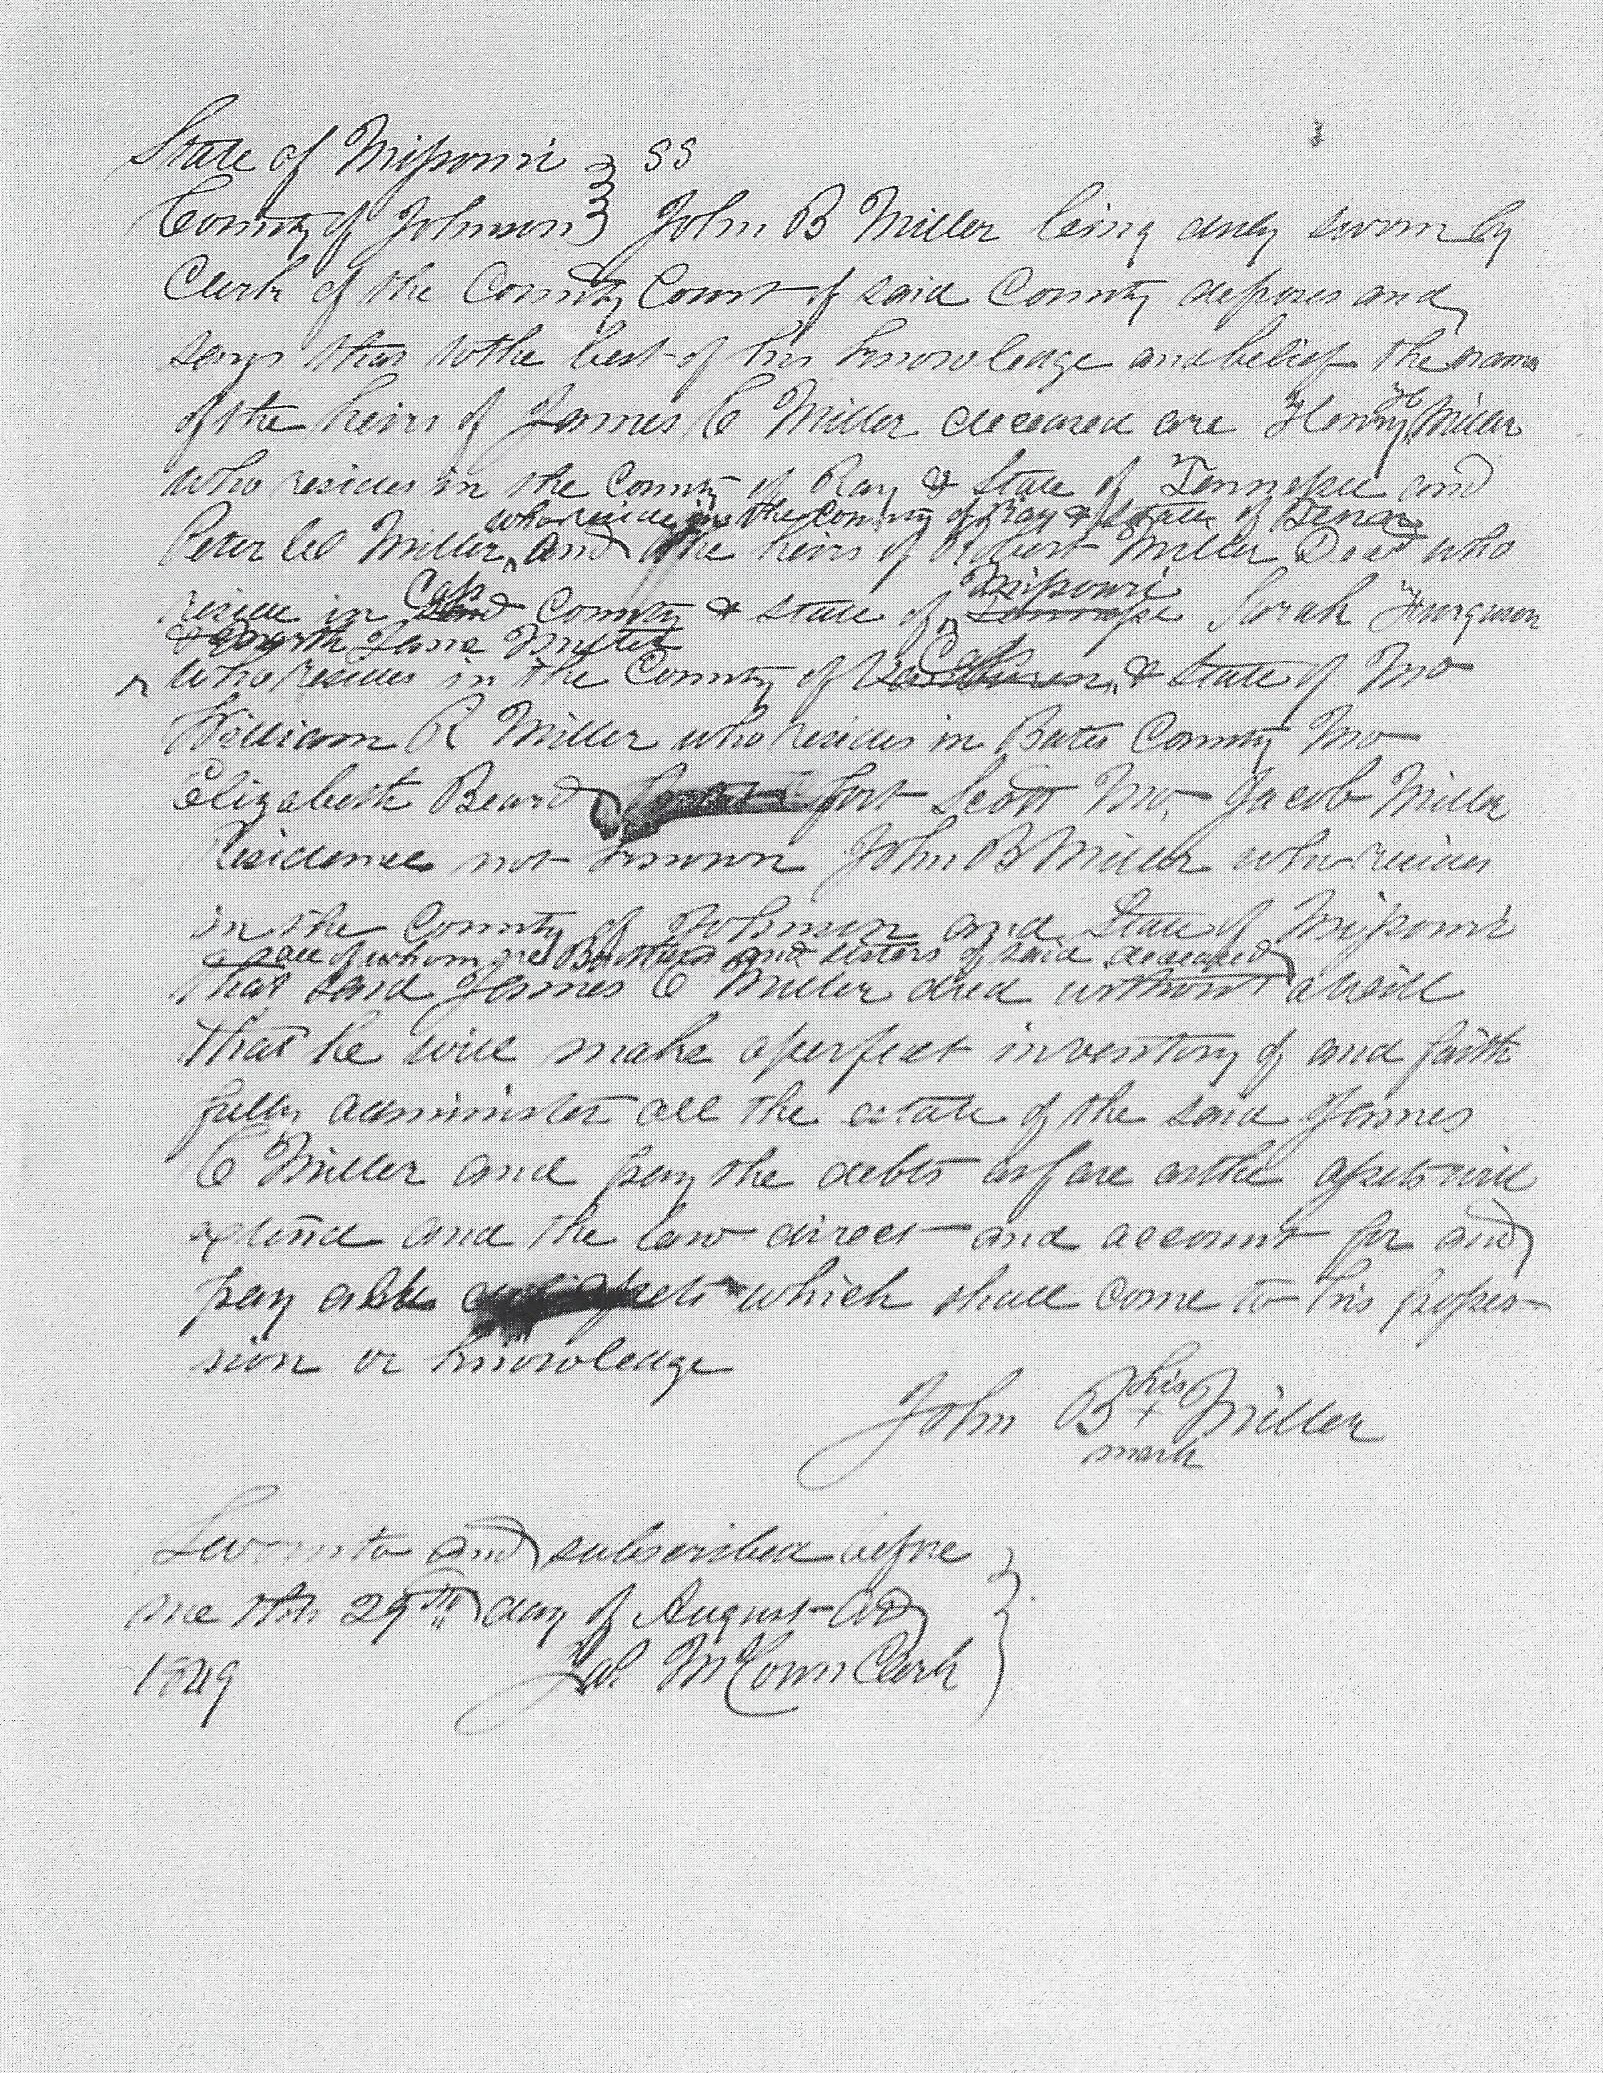 State of Missouri } SS
County of Johnson } John B Miller being duly sworn by
Clerk of the County Court of said County deposes and
says that to the best of his knowledge and belief the names
of the heirs of James C Miller deceased are Henry H Miller
who resides in the County of Ray & State of Tennessee and
who reside in the County of Ray & State of
Peter Miller, and the heirs of Robert Miller Dead who
Cass Missouri
reside in County & State of Tennessee Sarah Furguson
& Jane Miller
Cass
who resides in the County of Van Buren & State of Mo
William R Miller who resides in Bates County Mo
Elizabeth Beard Fort Scott Mo, Jacob Miller
Residence not known John B Miller who resides
in the County of Johnson and State of Missouri
all of whom are Brothers and sisters of said deceased
that said James C Miller died without a will
that he will make a perfect inventory of and faith
fully administer all the estate of the said James
C Miller and pay the debts as far as the assets will
extend and the law direct and account for and
pay all assets which shall come to his posses-
sion or knowledge
his
John B + Miller
mark
Sworn to and subscribed before
me this 29th day of August AD
1849 Jas McCown Clerk